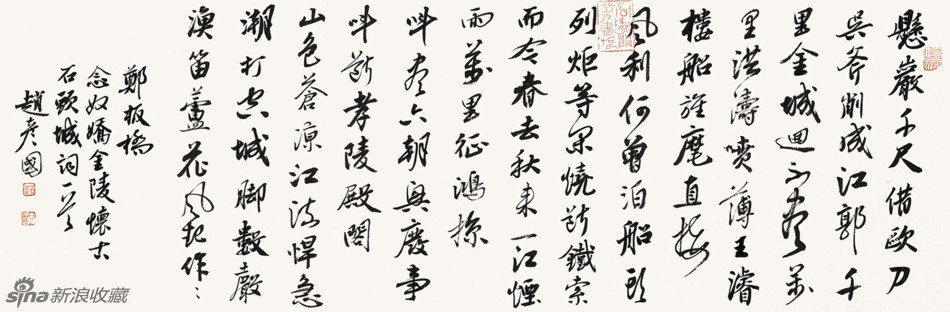 懸巖千尺借歐刀
吳斧削成江郭千
里金城迴不盡萬
里洪濤噴薄王濬
樓船旌麾直指
風利何曾泊船頭
列炬等閒燒斷鐵索
而今春去秋來一江煙
雨萬里征鴻掠
叫盡六朝興廢事
叫斷孝陵殿閣
山色蒼涼江流悍急
潮打空城腳數聲
漁笛蘆花風起作〻
鄭板橋
念奴嬌金陵懷古
石頭城詞一首
趙彥國
sina新浪收藏